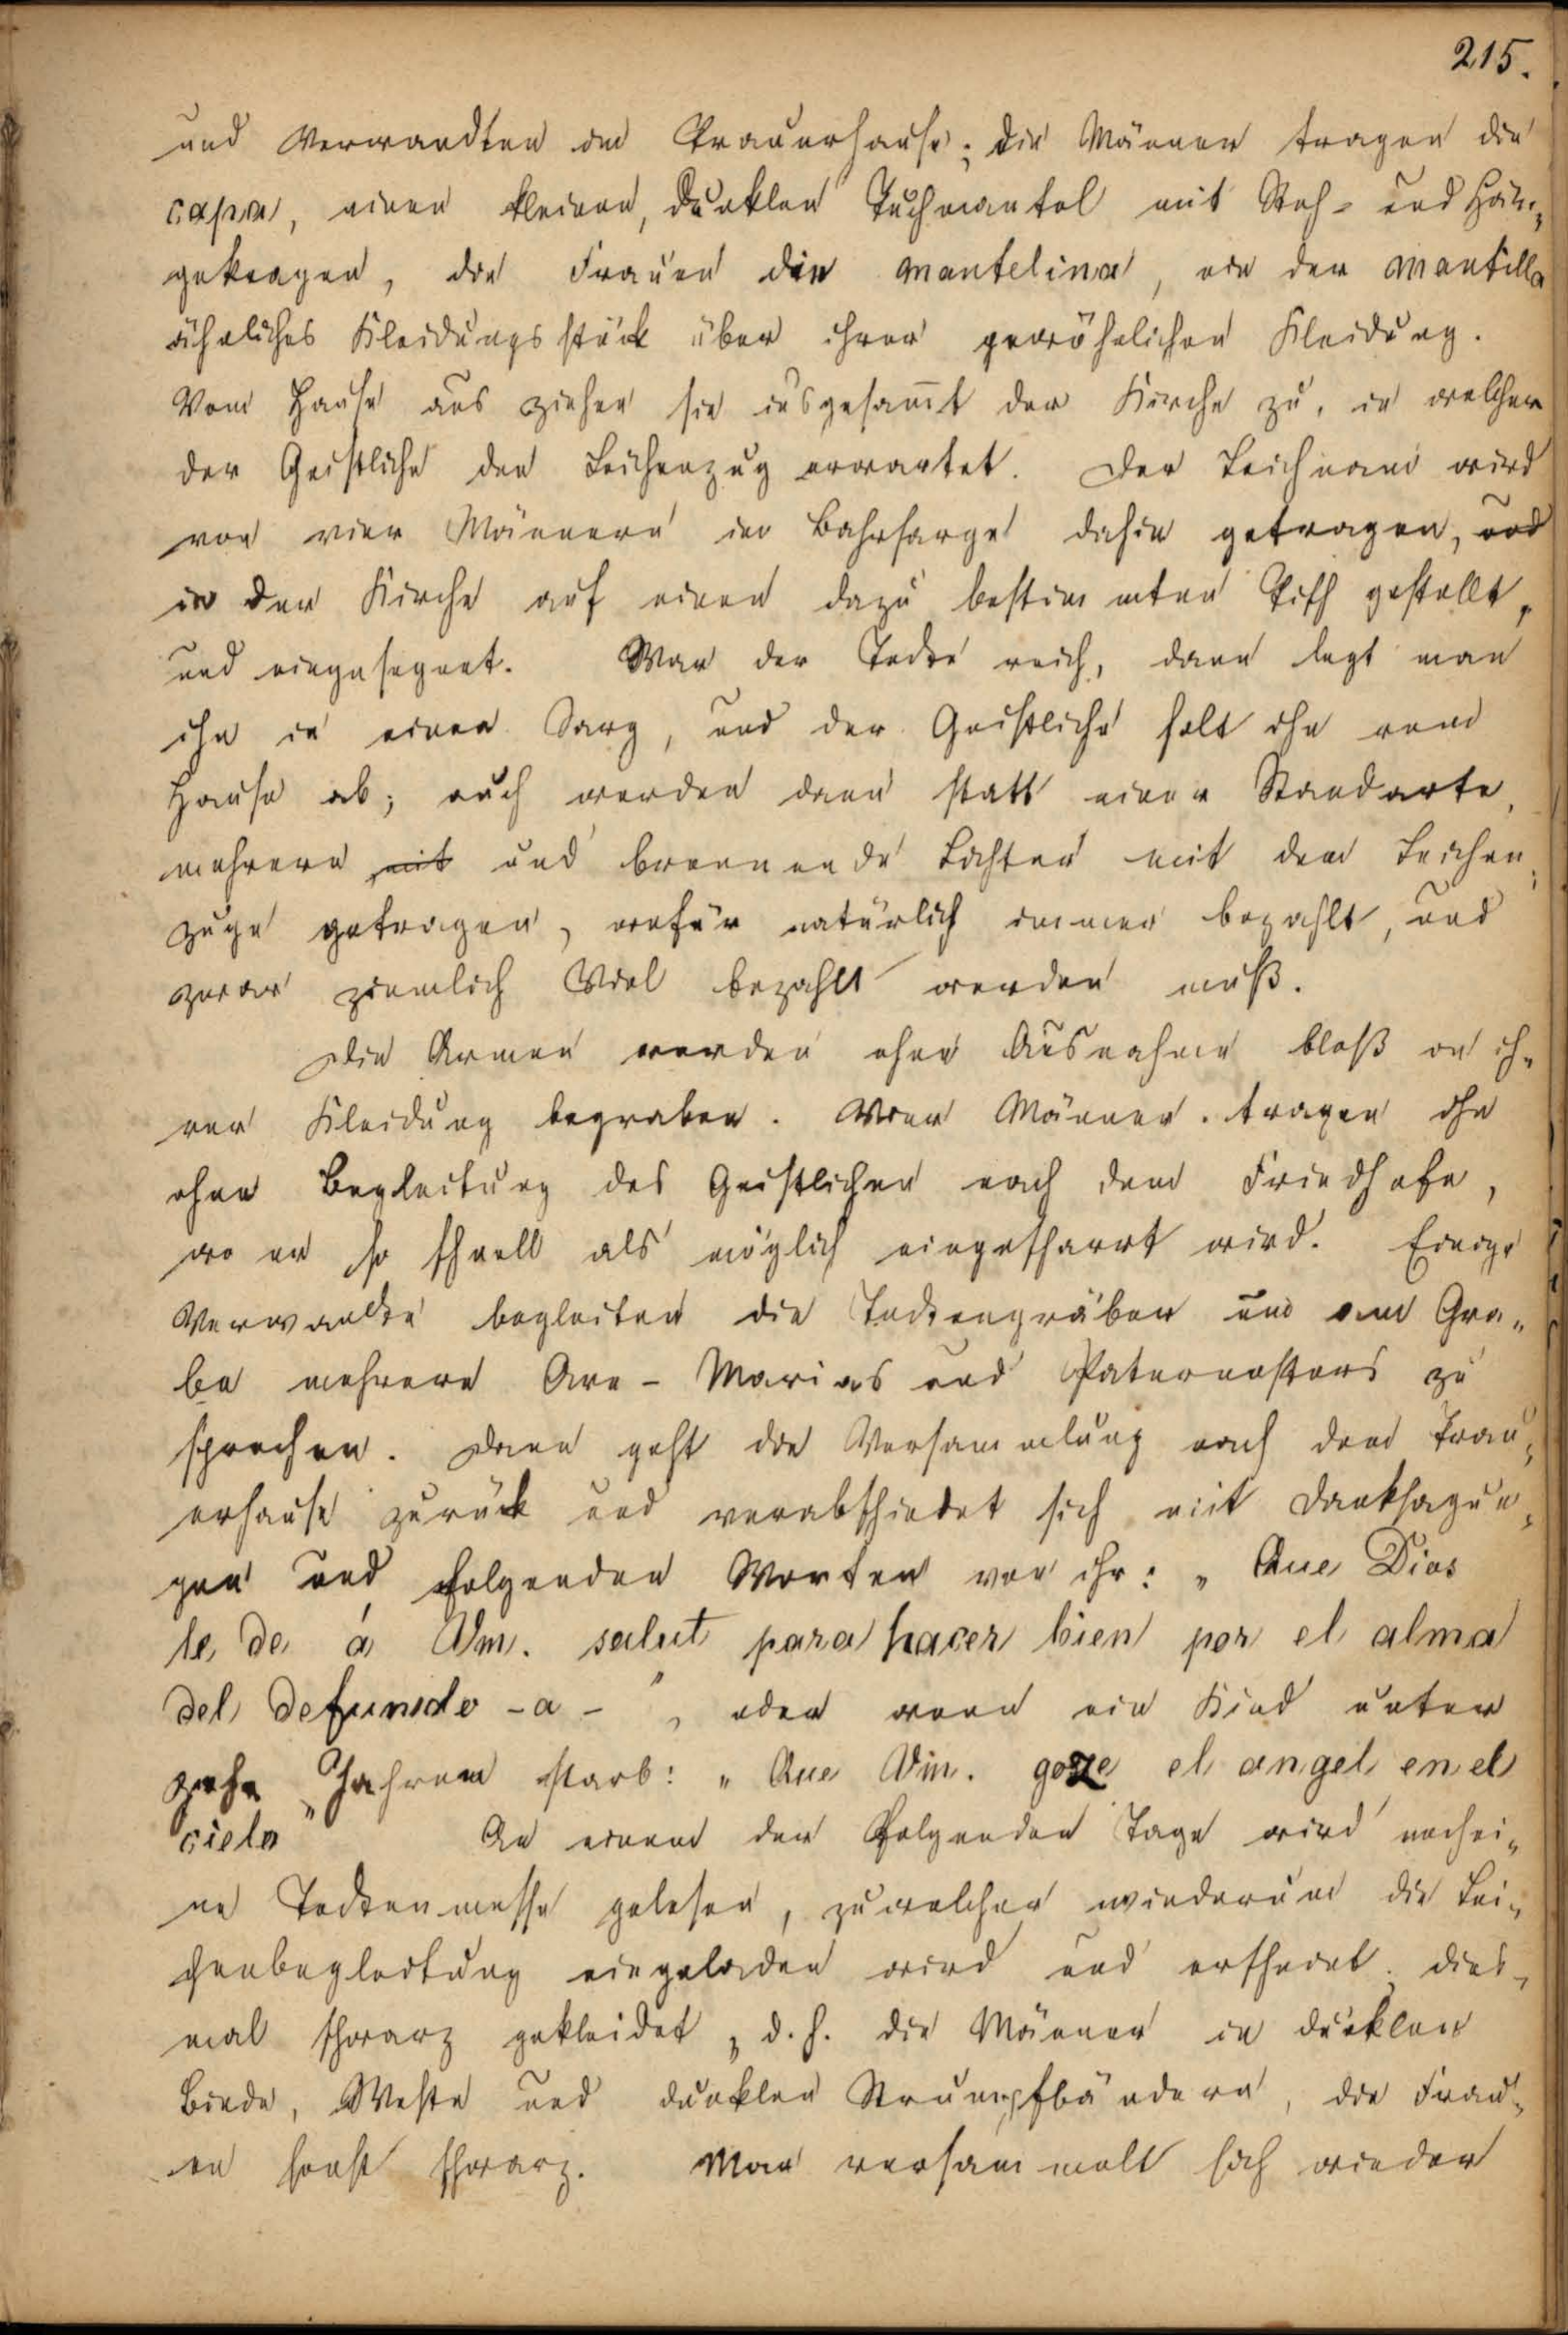 215.
und Verwandten im Trauerhause; die Männer tragen die
capa, einen kleinen, dunklen Tuchmantel mit Steh- und Hän„
gekragen, die Frauen die mantelina, ein der mantilla
ähnliches Kleidungsstück über ihrer gewöhnlichen Kleidung.
Vom Hause aus ziehen sie insgesam̄t der Kirche zu, in welcher
der Geistliche den Leichenzug erwartet. Der Leichnam wird
von vier Männern im Bahrsarge dahin getragen, und
in der Kirche auf einen dazu bestimmten Tisch gestellt,
und eingesegnet. War der Todte reich, dann legt man
ihn in einen Sarg, und der Geistliche holt ihn vom
Hause ab; auch werden dann statt einer Standarte,
mehrere mit und brennende Lichter mit dem Leichen„
zuge getragen, wofür natürlich immer bezahlt, und
zwar ziemlich Viel bezahlt werden muß.
Die Armen werden ohne Ausnahme bloß in ih„
rer Kleidung begraben. Vier Männer tragen ihn
ohne Begleitung des Geistlichen nach dem Friedhofe,
wo er so schnell als möglich eingescharrt wird. Einige
Verwandte begleiten die Todtengräber um am Gra„
be mehrere Ave-Marias und Paternosters zu
sprechen. Dann geht die Versammlung nach dem Trau„
erhause zurück und verabschiedet sich mit Danksagun„
gen und folgenden Worten von ihr: „Que Dios
le de á Vm. salut para hacer bien por el alma
del defunído -a-", oder wenn ein Kind unter
zehn Jahren starb: „Que Vm. goze el angel en el
cielo" An einem der folgenden Tage wird noch ei„
ne Todtenmesse gelesen, zu welcher wiederum die Lei„
chenbegleitung eingeladen wird und erscheint dies„
mal schwarz gekleidet, d.h. die Männer in dunkler
Binde, Weste und dunklen Strumpfbändern, die Frau„
en sonst schwarz. Man versammelt sich wieder